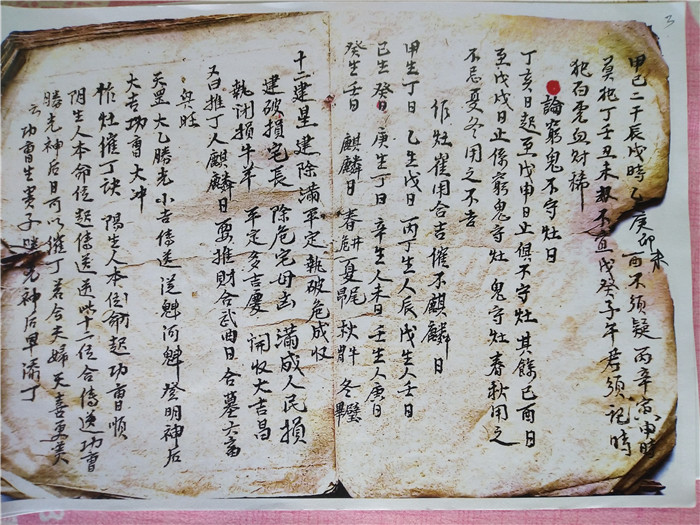 3
甲己二干辰戌時 乙庚卯酉不須疑 丙辛寅申時
未
莫犯丁壬丑未 不宜戊癸子午君須記時
犯白虎血財稀
論窮鬼不守灶日
丁亥日起至戊申日止俱不守灶 其餘己酉日
至戊戌日止係窮鬼守灶 鬼守灶春秋用之
不忌夏冬用之不吉
作灶催用合吉催不麒麟日
甲生丁日 乙生戊日 丙丁生人辰 戊生人壬日
己生癸日 庚生丁日 辛生人未日 壬生人庚日
癸生壬日 麒麟日 春 夏尾 秋 冬壁
十二建星 建除滿平定執破危成收
建破損宅長 除危宅母凶 滿成人民損
執閉損牛羊 平定多吉慶 開收大吉昌
又曰推丁人麒麟日 要推財合武曲日合墓大富
與旺
天罡 大乙勝光小吉傳送 從魁河魁 登明神后
大吉功曹大冲
作灶催丁訣 陽生人本位命起功曹日順
阴生人本命位起傳送逆 十二位合傳送功曹
勝光神后日可以催丁若合夫婦天喜更美
云功曹生貴子勝光神后早添丁